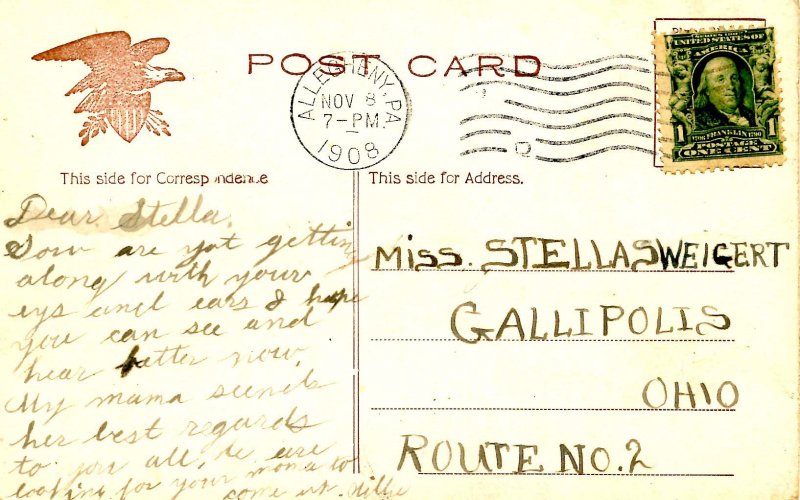 POST CARD
ALLEGHENY, PA.
NOV 8
7-PM.
1908
SERIES 1902
UNITED STATES OF
AMERICA
1706 FRANKLIN 1790
1 POSTAGE 1
ONE CENT
This side for Correspondence
This side for Address.
Dear. Stella.
How are yot getting
along with your
eys and ears I hope
you can see and
hear better now.
My mama scends
her best regards
to you all. We are
looking for your mama to
come up. Millie
Miss. STELLA SWEIGERT
GALLIPOLIS
OHIO
ROUTE NO. 2